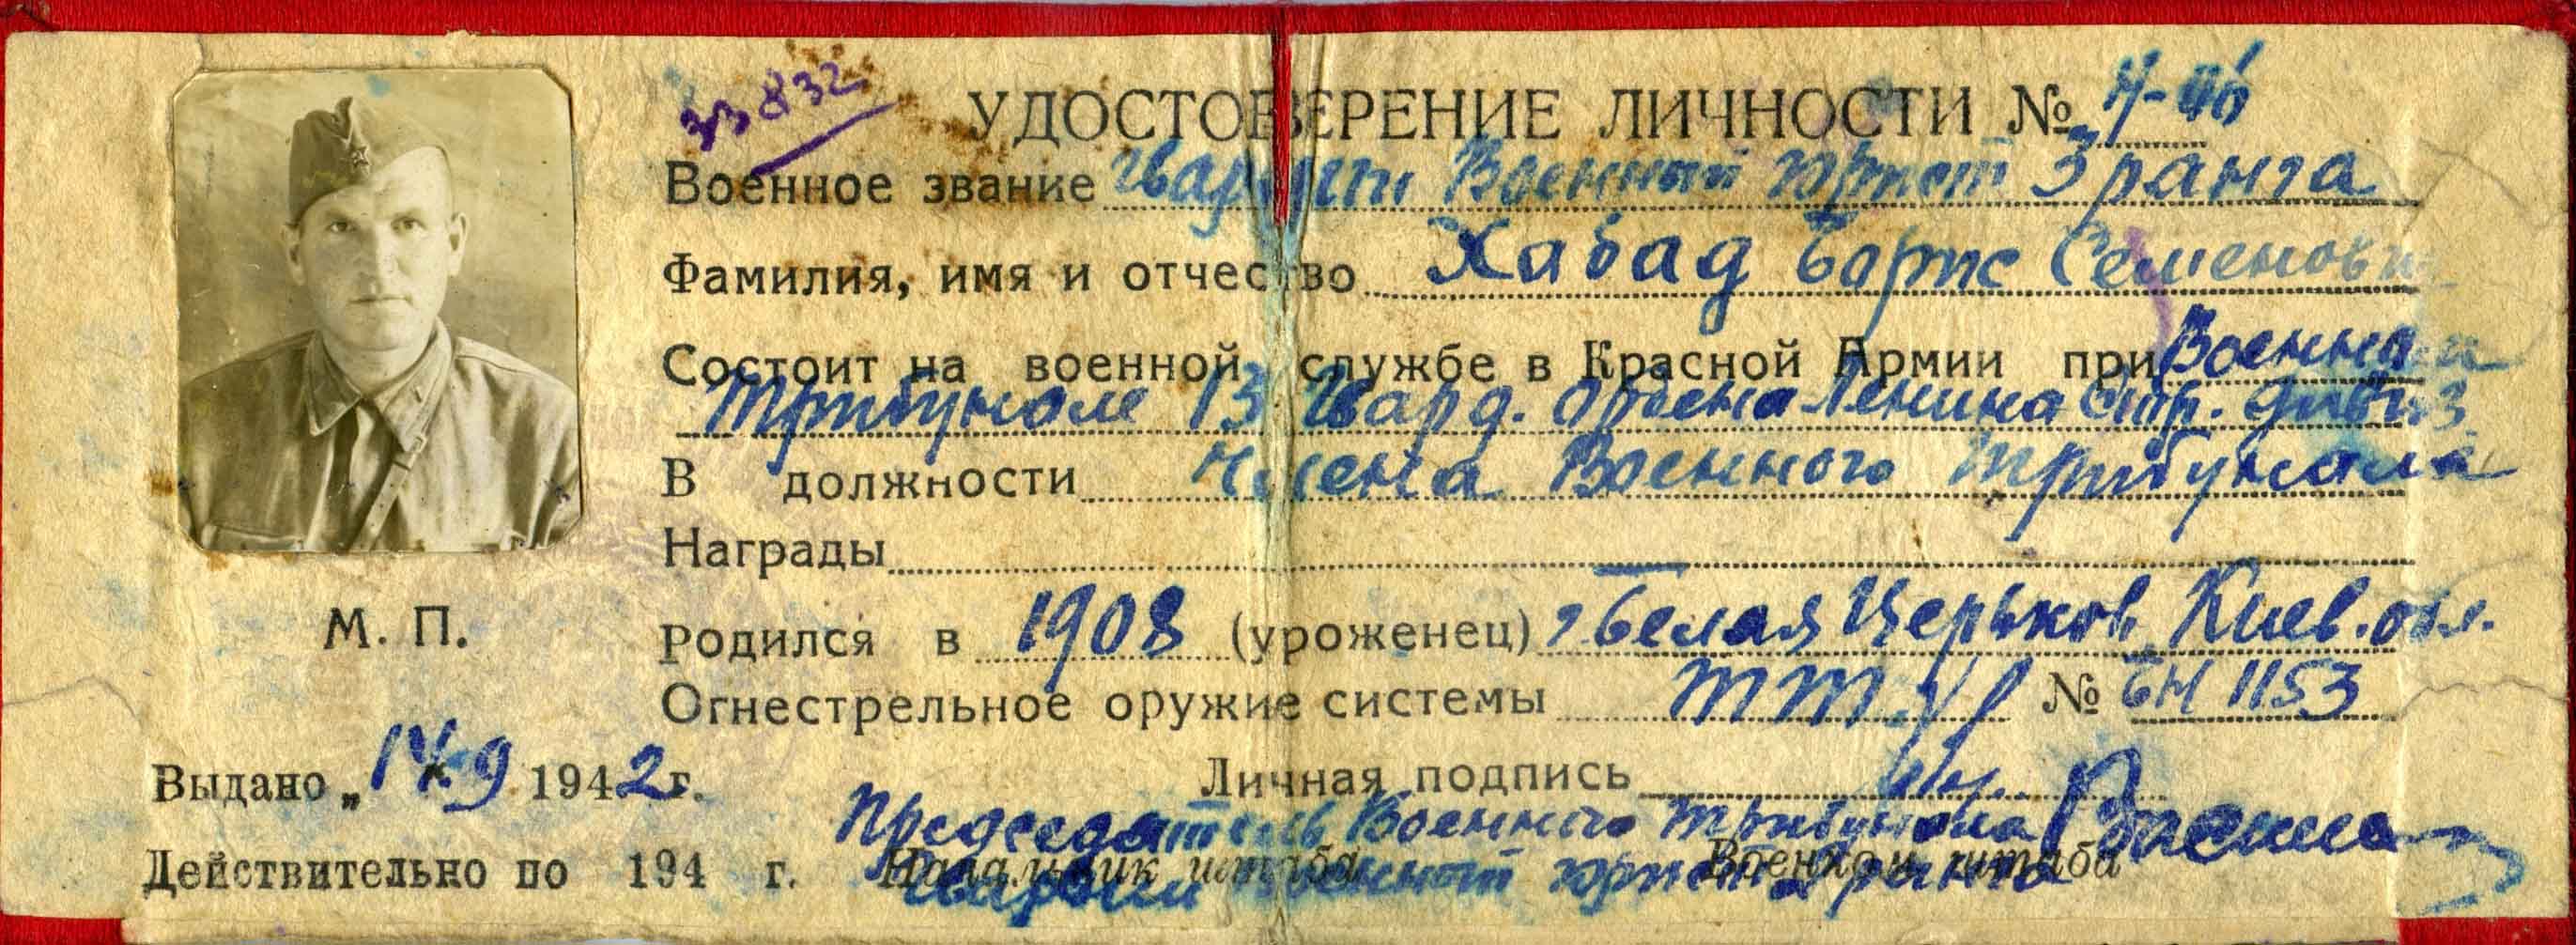 33832
УДОСТОВЕРЕНИЕ ЛИЧНОСТИ №
Военное звание гвардии Военный юрист 3 ранга
Фамилия, имя и отчество Хабад Борис Семенович
Состоит на военной службе в Красной Армии при Военном
трибунале 13 Гвард. Ордена Ленина стр. дивиз
В должности Члена Военного трибунала
Награды
М. П.
Родился в 1908 (уроженец) г Белая Церьковь Киев. обл.
Огнестрельное оружие системы ТТ № БН 1153
Выдано „14.9 1942 г.
Личная подпись
Председатель Военного трибунала
Действительно по 194 г. Начальник штаба Военком штаба
гвардии Военный юрист ранга